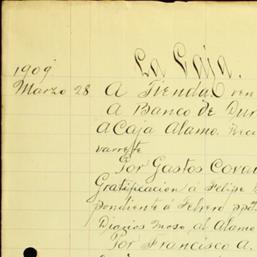 La Caja.
1909
Marzo 28 A Tienda C ven
A Banco de Dur
a Caja Alamo. Reci
varrete
Por Gastos Corau
Gratificacion á Felipe
pendiente á Febrero ppd
Diarios mozo al Alamo
Por Francisco A.